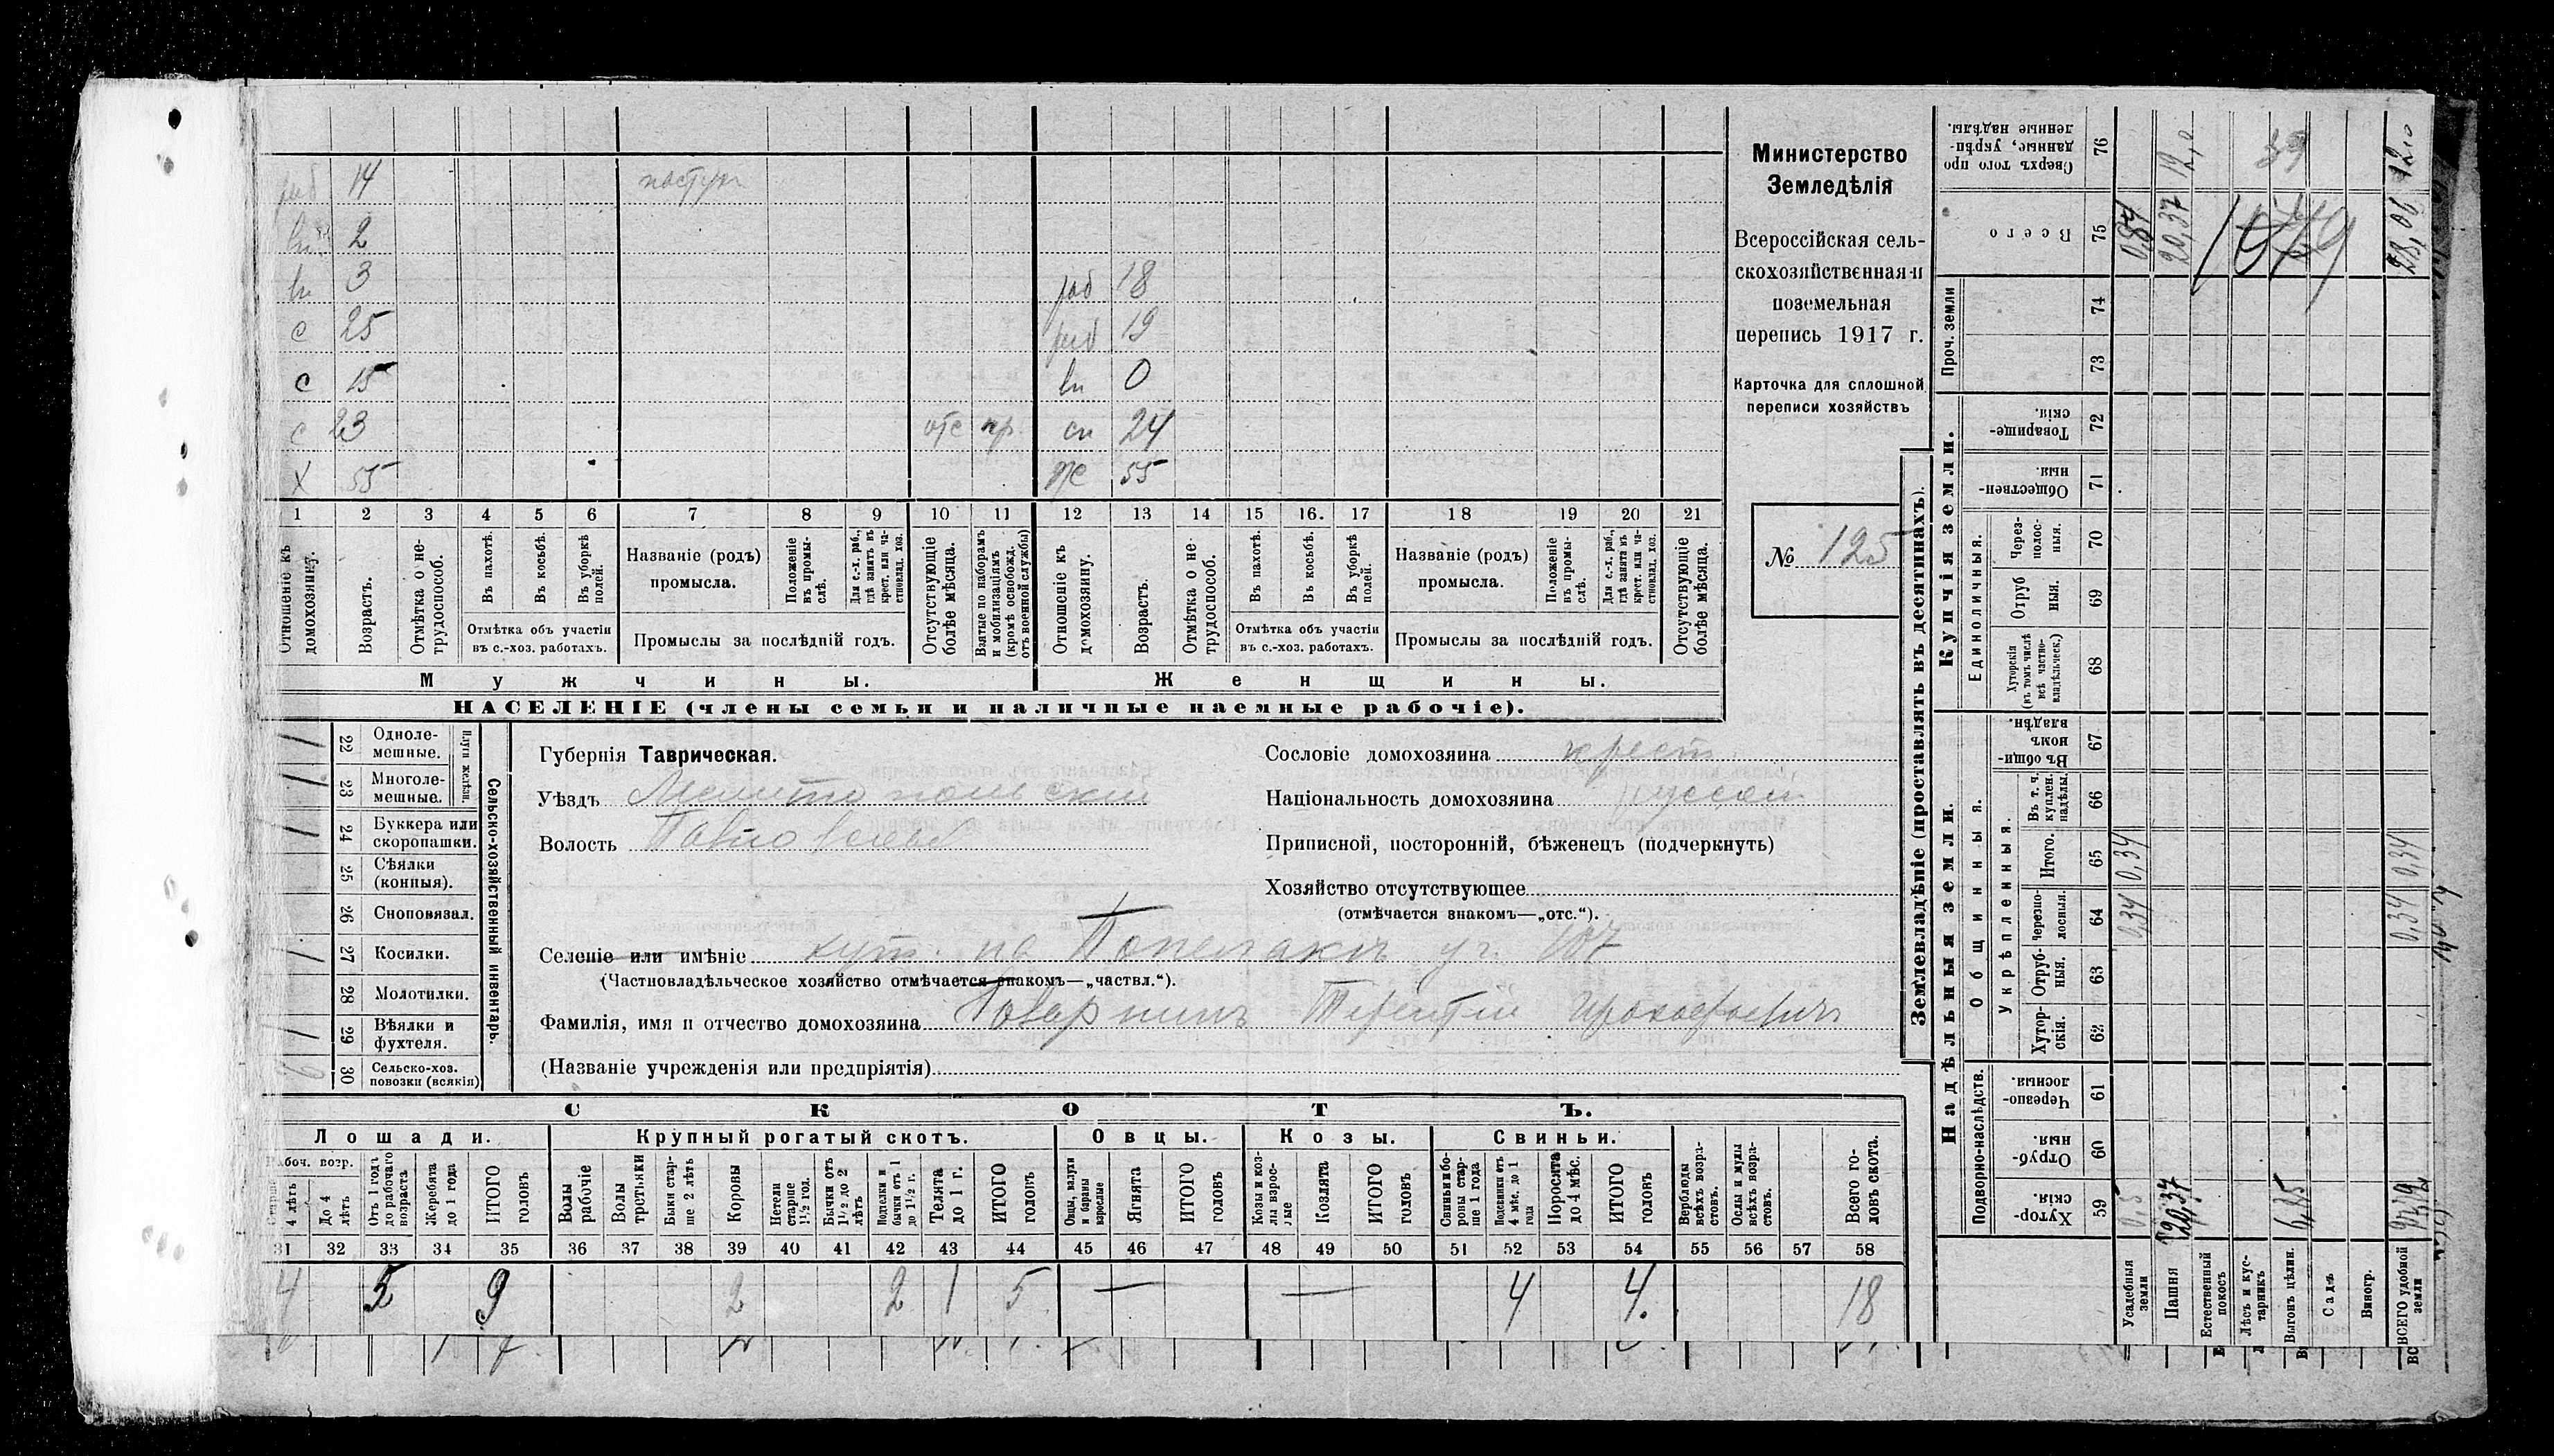 раб 14 пастух
вн 2
вн 3 раб 18
с 25 раб 19
с 15 вн 0
с 23 отс пр. сн 24
х 55 ж 55
1 2 3 4 5 6 7 8 9 10 11 12 13 14 15 16. 17 18 19 20 21
Отношеніе къ домохозяину.
Возрастъ.
Отмѣтка о не-
трудоспособ.
Въ пахотѣ.
Въ косьбѣ.
Въ уборкѣ
полей.
Отмѣтка объ участіи
въ с.-хоз. работахъ.
Названіе (родъ)
промысла.
Положеніе
въ промы-
слѣ.
Для с.-х. раб.,
гдѣ занятъ въ
крест. или ча-
стновлад. хоз.
Промыслы за послѣдній годъ.
Отсутствующіе
болѣе мѣсяца.
Взятые по наборамъ
и мобилизаціямъ
(кромѣ освобожд.
отъ военной службы)
Отношеніе къ
домохозяину.
Возрастъ.
Отмѣтка о не-
трудоспособ.
Въ пахотѣ.
Въ косьбѣ.
Въ уборкѣ
полей.
Отмѣтка объ участіи
въ с.-хоз. работахъ.
Названіе (родъ)
промысла.
Положеніе
въ промы-
слѣ.
Для с.-х. раб.,
гдѣ занята въ
крест. или ча-
стновлад. хоз.
Промыслы за послѣдній годъ.
Отсутствующіе
болѣе мѣсяца.
Мужчины. Женщины.
НАСЕЛЕНІЕ (члены семьи и наличные наемные рабочіе).
Министерство
Земледѣлія
Всероссійская сель-
скохозяйственная и
поземельная
перепись 1917 г.
Карточка для сплошной
переписи хозяйствъ
№ 125
Сельско-хозяйственный инвентарь.
Плуги желѣзн.
1 22 Одноле-
мешные.
1 23 Многоле-
мешные.
1 24 Буккера или
скоропашки.
25 Сѣялки
(конныя).
26 Сноповязал.
1 27 Косилки.
28 Молотилки.
1 29 Вѣялки и
фухтеля.
30 Сельско-хоз.
повозки (всякія)
Губернія Таврическая.
Уѣздъ Мелитопольскій
Волость
Сословіе домохозяина крест.
Національность домохозяина русскій
Приписной, посторонній, бѣженецъ (подчеркнуть)
Хозяйство отсутствующее
(отмѣчается знакомъ—„отс.“).
Селеніе или имѣніе хут. на уч. 107
(Частновладѣльческое хозяйство отмѣчается знакомъ—„частвл.“).
Фамилія, имя и отчество домохозяина Терентій Прокофьевичъ
(Названіе учрежденія или предпріятія)
СКОТЪ.
Лошади. Крупный рогатый скотъ. Овцы. Козы. Свиньи.
Рабоч. возр.
Старше
4 лѣтъ
До 4
лѣтъ
Отъ 1 года
до рабочаго
возраста
Жеребята
до 1 года
ИТОГО
головъ
Волы
рабочіе
Волы
третьяки
Быки стар-
ше 2 лѣтъ
Коровы
Нетели
старше
1½ год.
Бычки отъ
1½ до 2
лѣтъ
Подтелки и
бычки отъ 1
до 1½ г.
Телята
до 1 г.
ИТОГО
головъ
Овцы, валухи
и бараны
взрослые
Ягнята
ИТОГО
головъ
Козы и коз-
лы взрос-
лые
Козлята
ИТОГО
головъ
Свиньи и бо-
ровы стар-
ше 1 года
Подсвинки отъ
4 мѣс. до 1
года
Поросята
до 4 мѣс.
ИТОГО
головъ
Верблюды
всѣхъ возра-
стовъ.
Ослы и мулы
всѣхъ возра-
стовъ.
Всего го-
ловъ скота.
31 32 33 34 35 36 37 38 39 40 41 42 43 44 45 46 47 48 49 50 51 52 53 54 55 56 57 58
4 5 9 2 2 1 5 — — 4 4. 18
Землевладѣніе (проставлять въ десятинахъ).
Надѣльныя земли. Купчія земли. Проч. земли
Подворно-наслѣдств. Общинныя. Укрѣпленныя. Единоличныя.
Сверхъ того про
данные, укрѣп-
ленные надѣлы.
76
Всего
75
74
73
Товарище-
скія.
72
Обществен-
ныя.
71
Через-
полос-
ныя.
70
Отруб
ныя.
69
Хуторскія
(въ томъ числѣ
всѣ частно-
владѣльческ.)
68
Въ общи-
номъ
владѣн.
67
Въ т. ч.
куплен.
надѣлы.
66
Итого.
65
Черезпо-
лосныя.
64
Отруб-
ныя.
63
Хутор-
скія.
62
Черезпо-
лосныя.
61
Отруб-
ныя.
60
Хутор-
скія.
59
Усадебныя
земли
0,5 0,34 0,34 0,84
Пашня
20,37 20,37 12,0
Естественный
покосъ
Лѣсъ и кус-
тарникъ
Выгонъ цѣлин.
Садъ
Виногр.
ВСЕГО удобной
земли
0,34 0,34 28,06 12,0